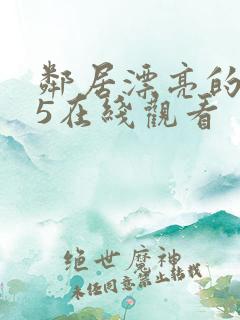 鄰居漂亮的
5在线觀看
绝世魔神
未经同意禁止转载